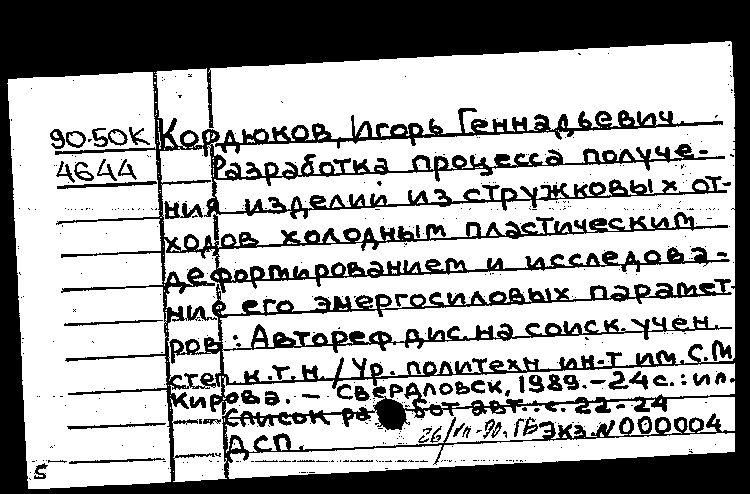 90-50К Кордюков, Игорь Геннадьевич.
4644 Разработка процесса получе-
ния изделий из стружковых от-
ходов холодным пластическим
деформированием и исследова-
ние его энергосиловых парамет-
ров : Автореф. дис. на соиск. учен.
степ к.т.н. / Ур. политехн. ин-т им. С.М
Кирова. – Свердловск, 1989. – 24 с. : ил.
Список работ авт.: с. 22-24
ДСП. 26/VII-90. ГБ Экз. N 000004.
5